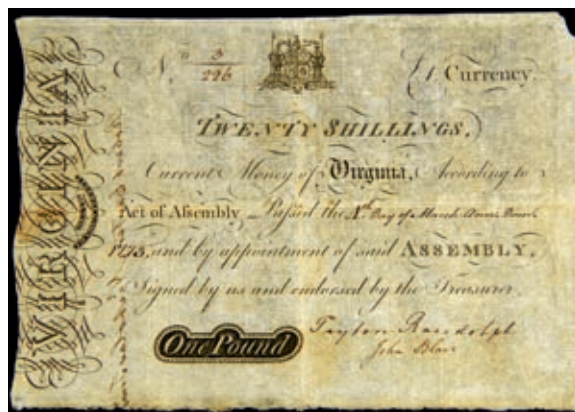 VIRGINIA
No. 3 / 226
£1 Currency.
TWENTY SHILLINGS,
Current Money of Virginia, According to
Act of Assembly Passed the Day of March Anno Dom.
1773, and by appointment of said ASSEMBLY.
Signed by us and endorsed by the Treasurer.
One Pound
Peyton Randolph
John Blair